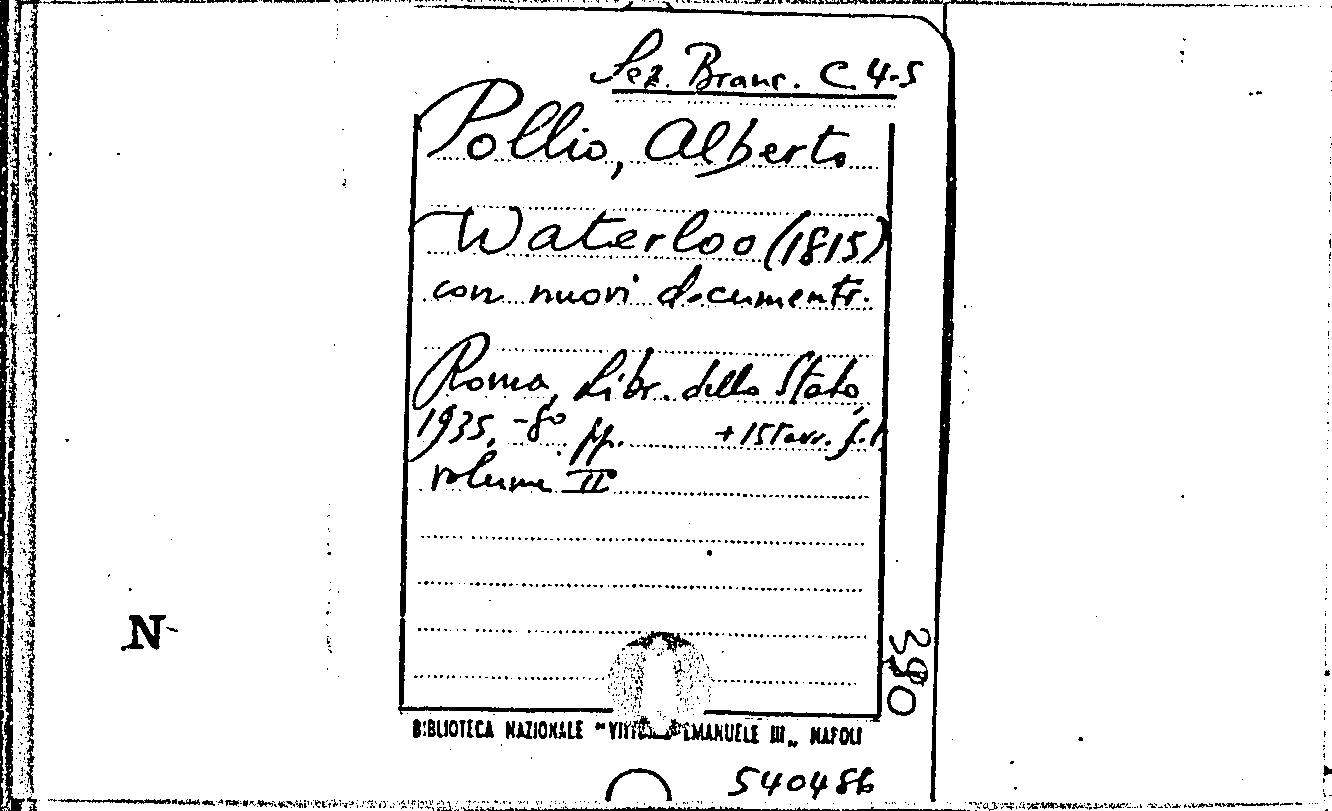 Sez. Branc. C 4-5
Pollio, Alberto
Waterloo (1815)
con nuovi documenti.
Roma, Libr. dello Stato,
1935, -8° pp. + 15 Tavv. f.t.
volume II
N
390
BIBLIOTECA NAZIONALE "VITTORIO EMANUELE III„ NAPOLI
540486